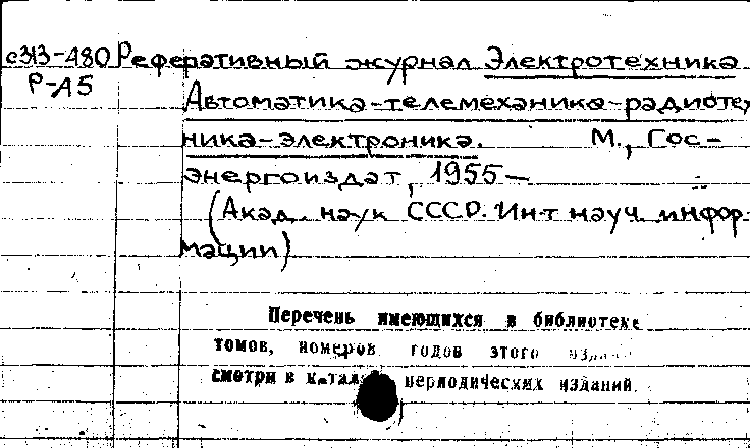 с313-480 Реферативный журнал Электротехника
Р-А5
Автоматика-телемеханика-радиотех
ника-электроника. М., Гос-
энергоиздат, 1955—
(Акад. наук СССР. Ин-т науч. инфор-
мации)
Перечень имеющихся в библиотеке
томов, номеров годов этого
смотри в периодических изданий.